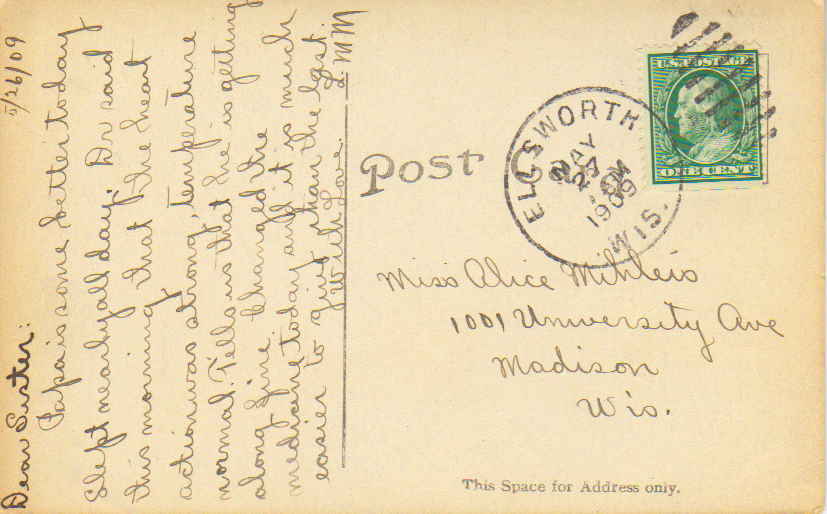 5/26/09
Dear Sister:
Papa is some better today
Slept nearly all day. Dr said
this morning that the heart
action was strong, temperature
normal. Tells us that he is getting
along fine. Changed the
medicine today and it is much
easier to give than the last.
With Love.
L M M
Post
ELLSWORTH
MAY
1909
WIS.
U.S. POSTAGE
ONE CENT
Miss Alice Mihleis
1001 University Ave
Madison
Wis.
This Space for Address only.